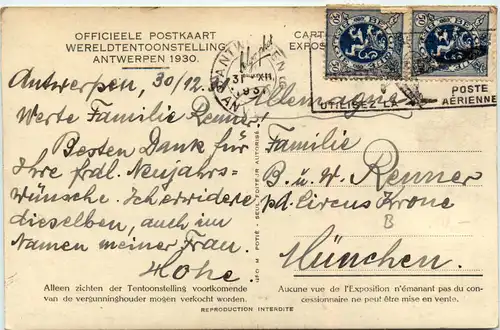 OFFICIEELE POSTKAART
WERELDTENTOONSTELLING
ANTWERPEN 1930.
CART
EXPOS
ANTWERPEN
31 XII
1931
UTILISEZ LA
POSTE
AÉRIENNE
Antwerpen, 30/12.
Allemagne
Werte Familie Renner!
Besten Dank für
Ihre frdl. Neujahrs-
wünsche. Ich erwidere
dieselben, auch im
Namen meiner Frau.
Hohe.
Familie
B. u. W. Renner
pd. Circus Krone
B
München.
EDIT. M. POTIÉ - SEUL EDITEUR AUTORISÉ.
Alleen zichten der Tentoonstelling voortkomende
van de vergunninghouder mogen verkocht worden.
Aucune vue de l'Exposition n'émanant pas du con-
cessionnaire ne peut être mise en vente.
REPRODUCTION INTERDITE